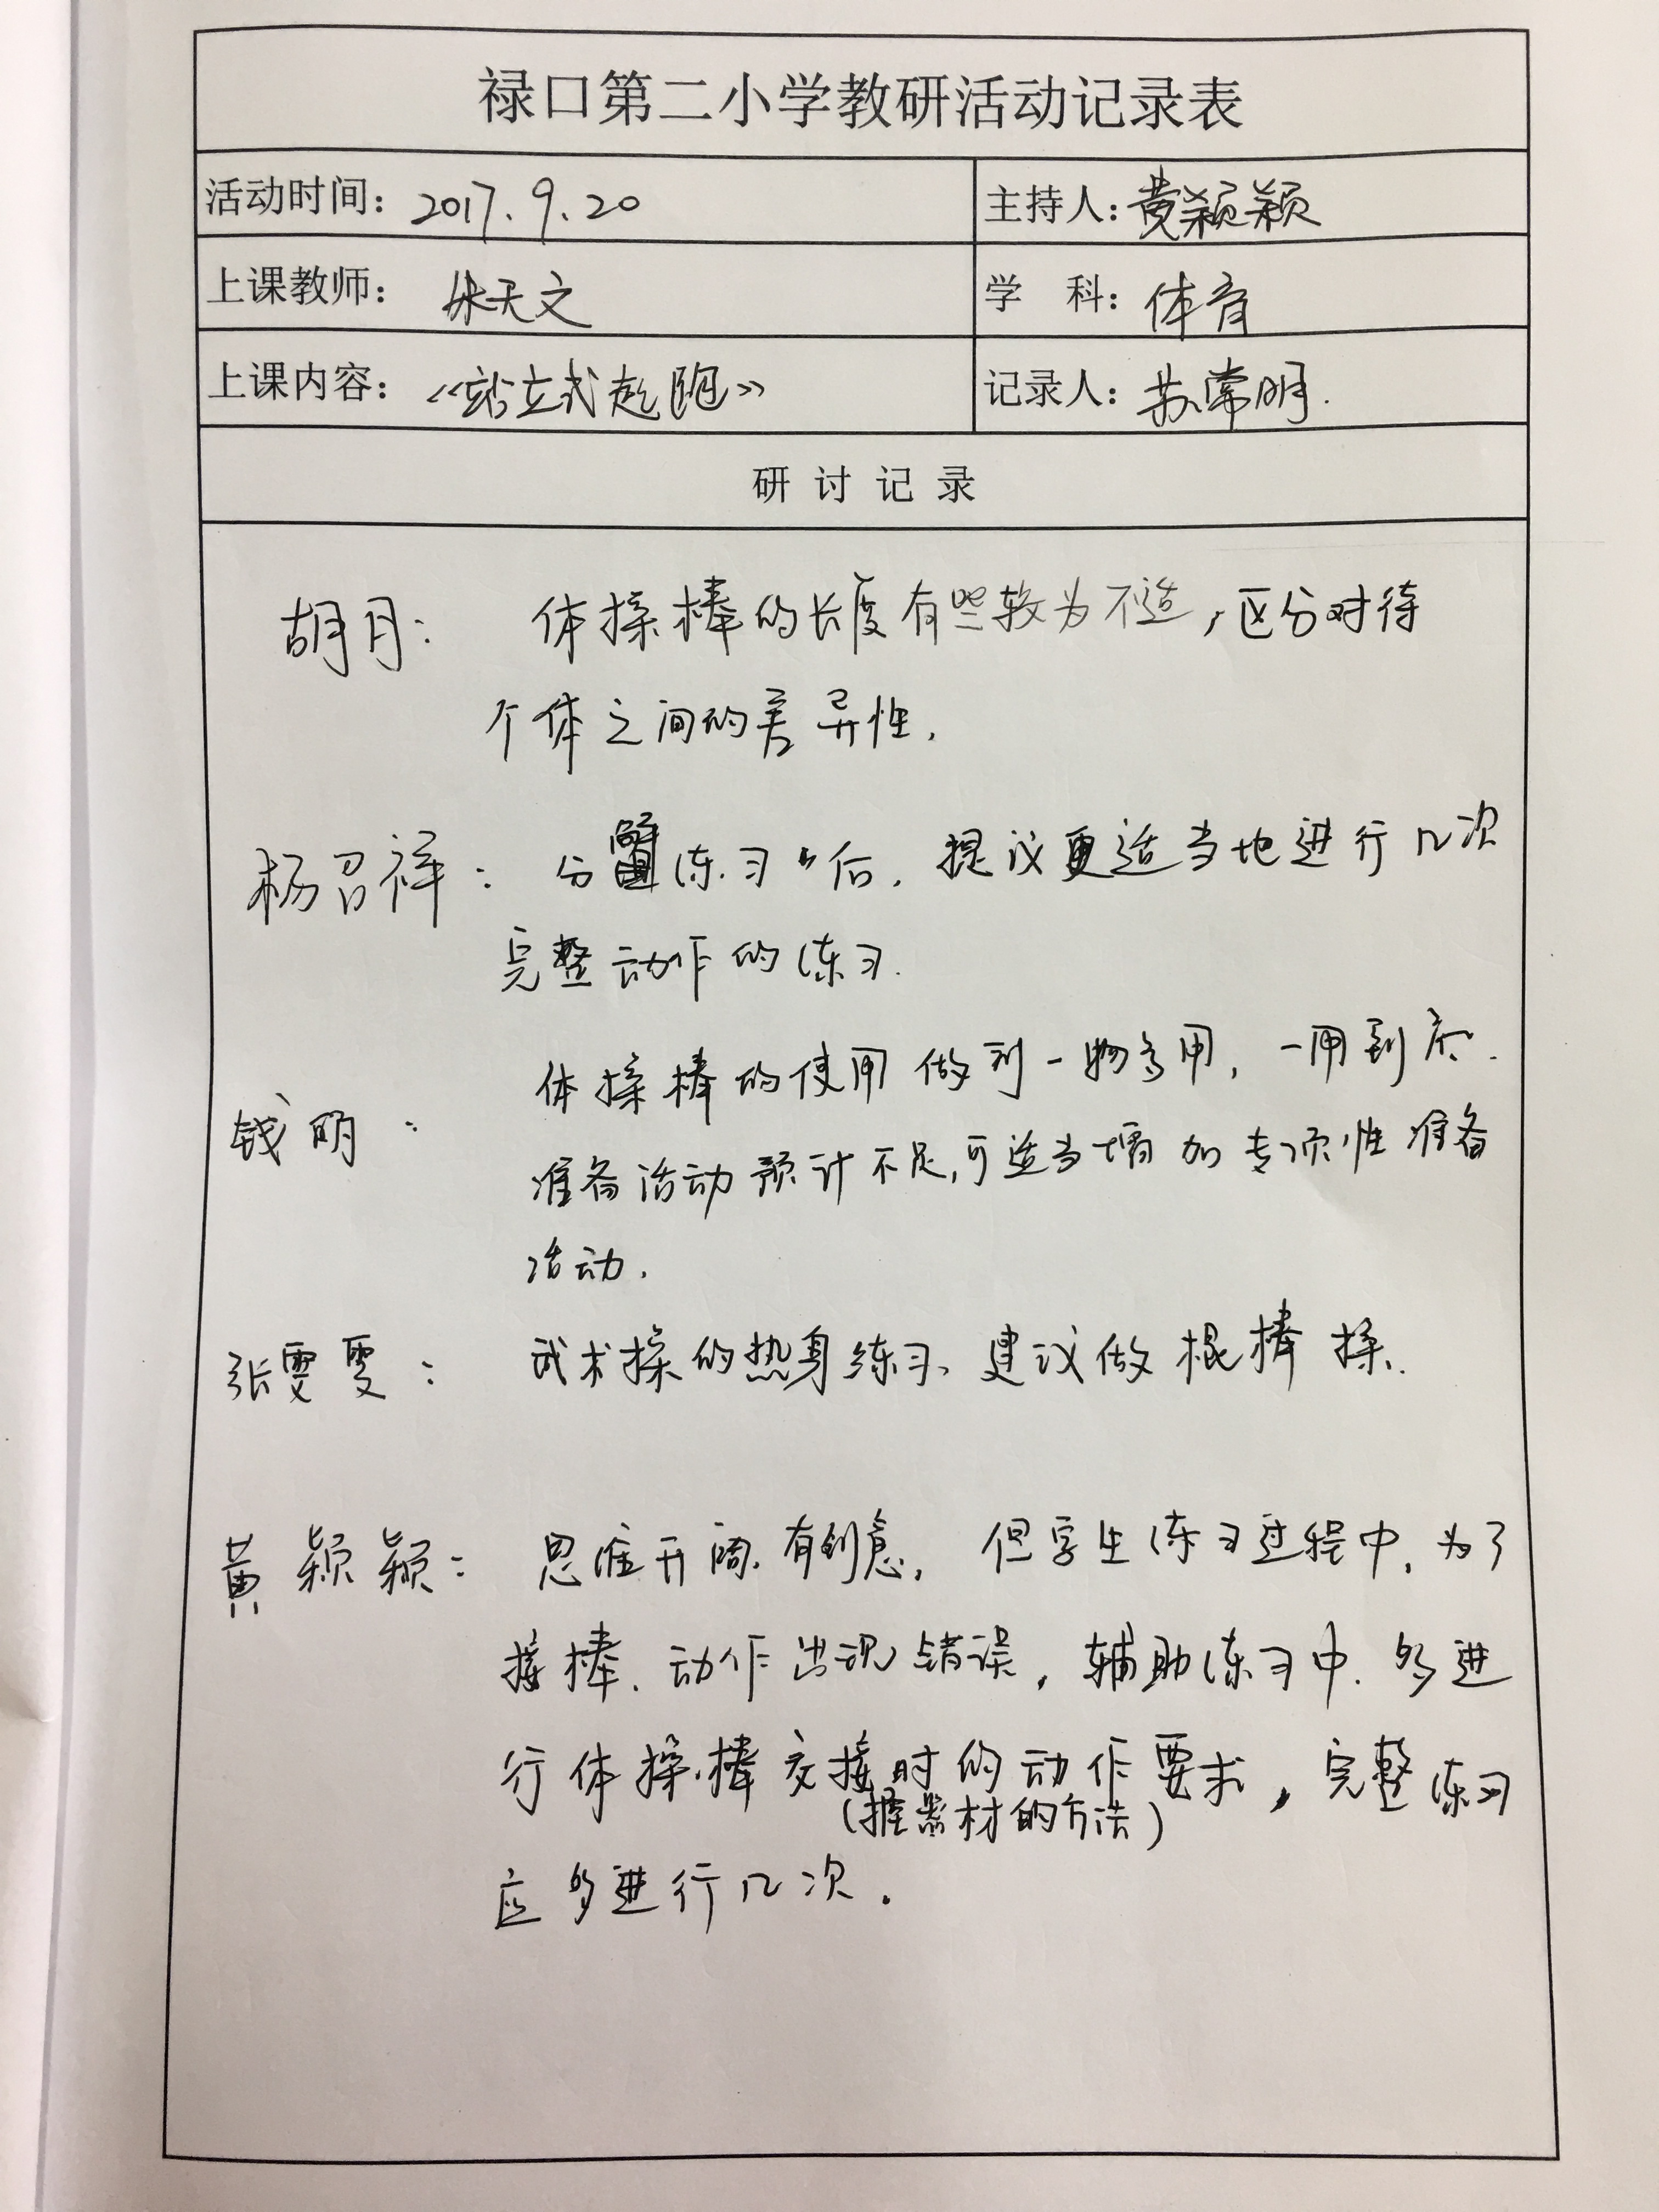 禄口第二小学教研活动记录表
活动时间：2017.9.20 主持人：黄颖颖
上课教师：天文 学 科：体育
上课内容：《站立式起跑》 记录人：苏常明.
研 讨 记 录
胡月： 体操棒的长度有些较为不适，区分对待
个体之间的差异性.
杨召祥： 分解练习后，提议更适当地进行几次
完整动作的练习.
体操棒的使用做到一物多用，一用到底.
钱明：
准备活动预计不足,可适当增加专项性准备
活动.
张雯雯： 武术操的热身练习、建议做棍棒操.
黄颖颖： 思维开阔.有创意. 但学生练习过程中.为了
接棒.动作出现错误，辅助练习中.多进
行体操棒交接时的动作要求，完整练习
(握器材的方法)
应多进行几次.